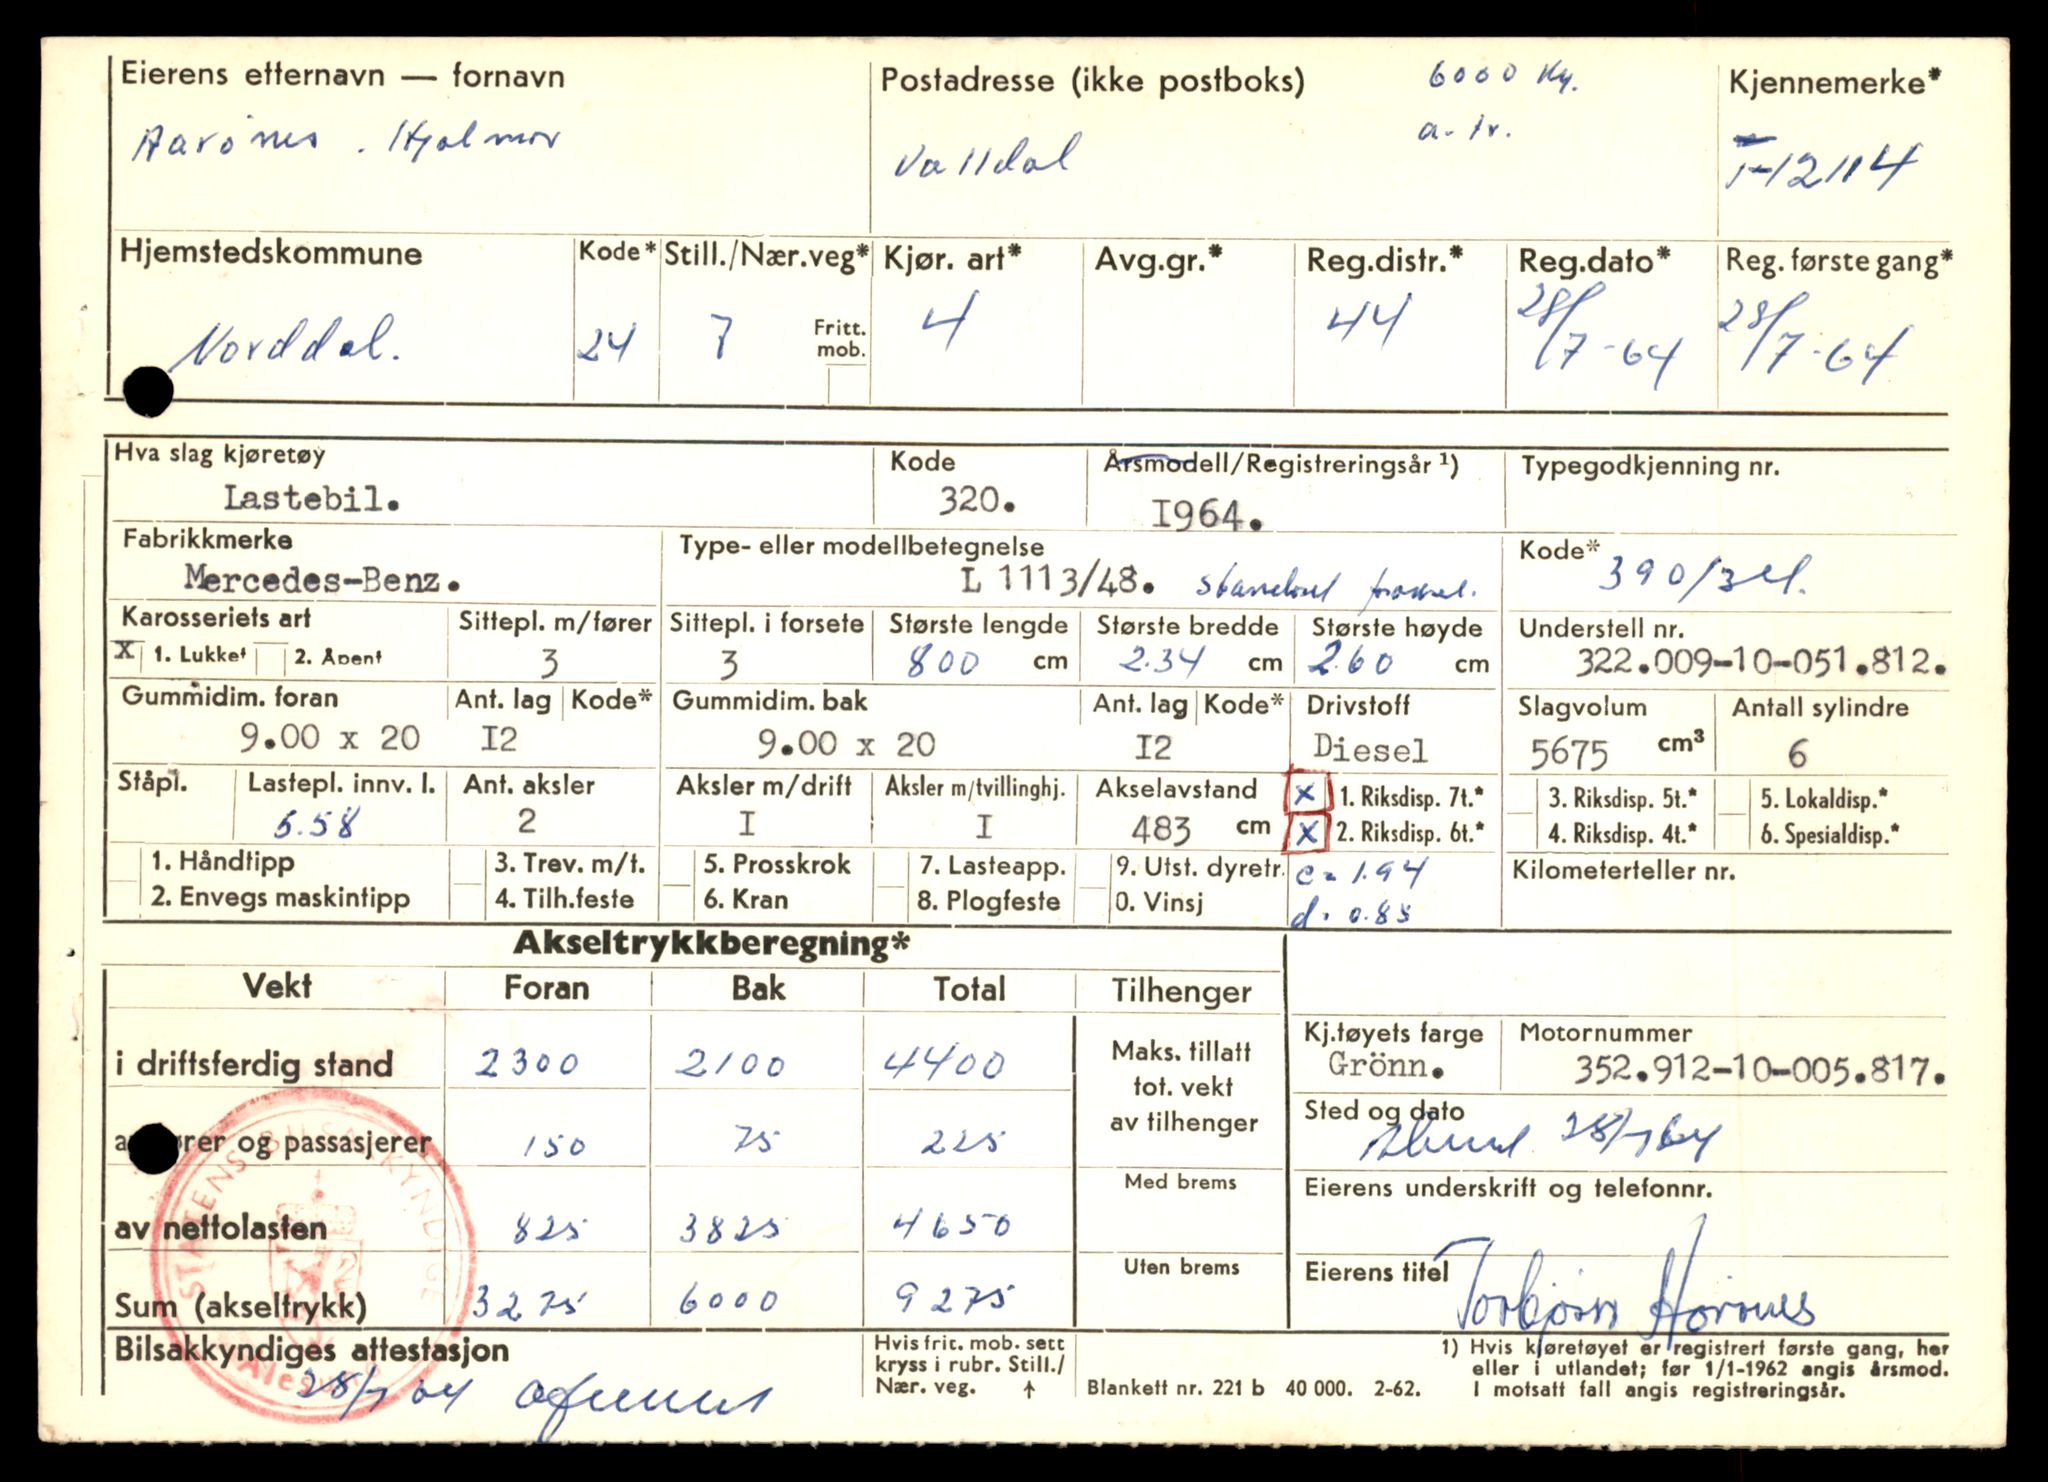 Eierens etternavn — fornavn Postadresse (ikke postboks) 6000 Kg. Kjennemerke*
a. tr.
Aarönes . Hjalmar Valldal T-12114
Hjemstedskommune Kode* Still./Nær.veg* Kjør. art* Avg.gr.* Reg.distr.* Reg.dato* Reg. første gang*
Norddal. 24 7 Fritt. mob. 4 44 28/7-64 28/7-64
Hva slag kjøretøy Kode Årsmodell/Registreringsår ¹) Typegodkjenning nr.
Lastebil. 320. I964.
Fabrikkmerke Type- eller modellbetegnelse Kode*
Mercedes-Benz. L 1113/48.
Karosseriets art Sittepl. m/fører Sittepl. i forsete Største lengde Største bredde Største høyde Understell nr.
X 1. Lukket 2. Åpent 3 3 800 cm 2.34 cm 2.60 cm 322.009-10-051.812.
Gummidim. foran Ant. lag Kode* Gummidim. bak Ant. lag Kode* Drivstoff Slagvolum Antall sylindre
9.00 x 20 I2 9.00 x 20 I2 Diesel 5675 cm³ 6
Ståpl. Lastepl. innv. l. Ant. aksler Aksler m/drift Aksler m/tvillinghj. Akselavstand x 1. Riksdisp. 7t.* 3. Riksdisp. 5t.* 5. Lokaldisp.*
5.58 2 I I 483 cm x 2. Riksdisp. 6t.* 4. Riksdisp. 4t.* 6. Spesialdisp.*
1. Håndtipp 3. Trev. m/t. 5. Prosskrok 7. Lasteapp. 9. Utst. dyretr. c = 1.94 Kilometerteller nr.
2. Envegs maskintipp 4. Tilh.feste 6. Kran 8. Plogfeste 0. Vinsj d. 0.85
Akseltrykkberegning*
Vekt Foran Bak Total Tilhenger
i driftsferdig stand 2300 2100 4400 Maks. tillatt tot. vekt av tilhenger Kj.tøyets farge Motornummer
Grönn. 352.912-10-005.817.
Sted og dato
og passasjerer 150 75 225 28/7 64
Med brems Eierens underskrift og telefonnr.
av nettolasten 825 3825 4650
Uten brems Eierens titel
Sum (akseltrykk) 3275 6000 9275 Torbjørn
STATENS BILSAKKYNDIGE
Bilsakkyndiges attestasjon Hvis frit. mob. sett kryss i rubr. Still./ Nær. veg. ↑ Blankett nr. 221 b 40 000. 2-62.
28/7 64
1) Hvis kjøretøyet er registrert første gang, her
eller i utlandet; før 1/1-1962 angis årsmod.
I motsatt fall angis registreringsår.